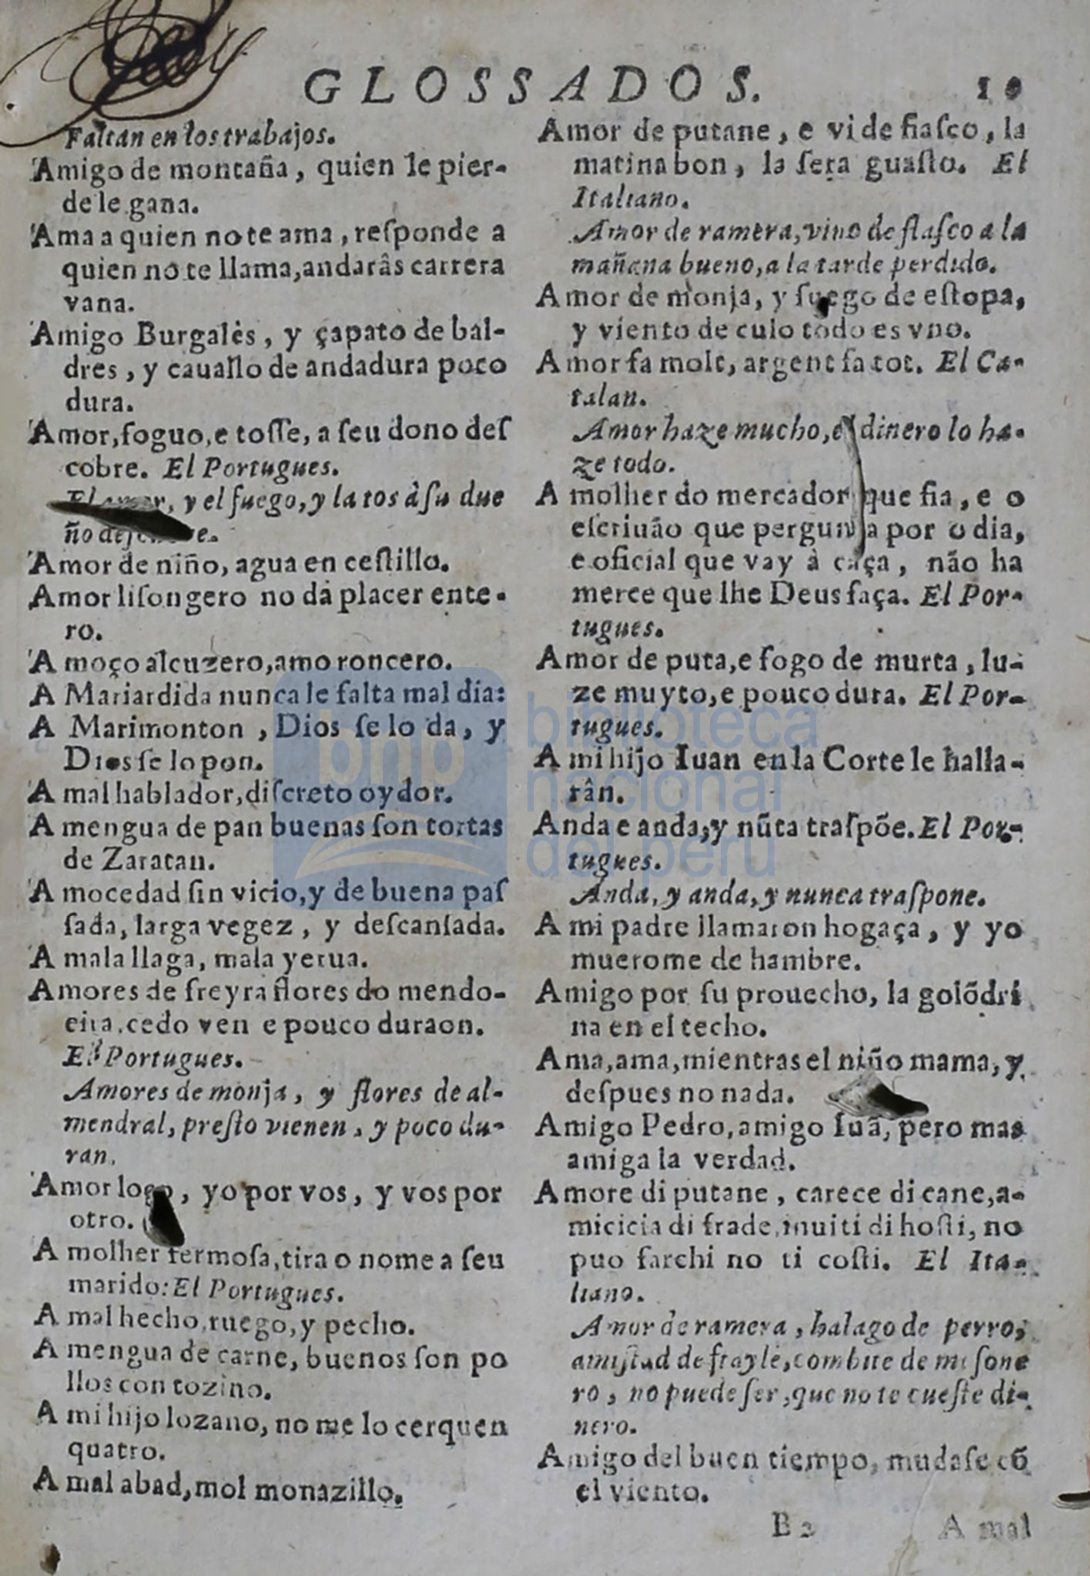 GLOSSADOS. 10
Faltan en los trabajos.
Amigo de montaña, quien le pier-
de le gana.
Ama a quien no te ama, reſponde a
quien no te llama, andarâs carrera
vana.
Amigo Burgalès, y çapato de bal-
dres, y cauallo de andadura poco
dura.
Amor, foguo, e toſſe, a ſeu dono deſ
cobre. El Portugues.
y el fuego, y la tos à ſu due
ño
Amor de niño, agua en ceſtillo.
Amor liſongero no dà placer ente-
ro.
A moço alcuzero, amo roncero.
A Mariardida nunca le falta mal dia:
A Marimonton, Dios ſe lo da, y
Dios ſe lo pon.
A mal hablador, diſcreto oydor.
A mengua de pan buenas ſon tortas
de Zaratan.
A mocedad ſin vicio, y de buena paſ
ſada, larga vegez, y deſcanſada.
A mala llaga, mala yerua.
Amores de freyra flores do mendo-
eira, cedo ven e pouco duraon.
El Portugues.
Amores de monja, y flores de al-
mendral, preſto vienen, y poco du-
ran.
Amor yo por vos, y vos por
otro.
A molher fermoſa, tira o nome a ſeu
marido: El Portugues.
A mal hecho, ruego, y pecho.
A mengua de carne, buenos ſon po
llos con tozino.
A mi hijo lozano, no me lo cerquen
quatro.
A mal abad, mol monazillo.
Amor de putane, e vi de fiaſco, la
matina bon, la ſera guaſto. El
Italiano.
Amor de ramera, vino de flaſco a la
mañana bueno, a la tarde perdido.
Amor de monja, y fuego de eſtopa,
y viento de culo todo es vno.
Amor fa molt, argent fa tot. El Ca-
talan.
Amor haze mucho, el dinero lo ha-
ze todo.
A molher do mercador que fia, e o
eſcriuão que pergunta por o dia,
e oficial que vay à caça, não ha
merce que lhe Deus faça. El Por-
tugues.
Amor de puta, e fogo de murta, lu-
ze muyto, e pouco dura. El Por-
tugues.
A mi hijo Iuan en la Corte le halla-
rân.
Anda e anda, y nũca traſpõe. El Por-
tugues.
Anda, y anda, y nunca traſpone.
A mi padre llamaron hogaça, y yo
muerome de hambre.
Amigo por ſu prouecho, la golõdri
na en el techo.
Ama, ama, mientras el niño mama, y
deſpues no nada.
Amigo Pedro, amigo Iuã, pero mas
amiga la verdad.
Amore di putane, carece di cane, a-
micicia di frade, inuiti di hoſti, no
puo farchi no ti coſti. El Ita-
liano.
Amor de ramera, halago de perro,
amiſtad de frayle, combite de meſone
ro, no puede ſer, que no te cueſte di-
nero.
Amigo del buen tiempo, mudaſe cõ
el viento.
B 2 A mal
bnp biblioteca
nacional
del perú